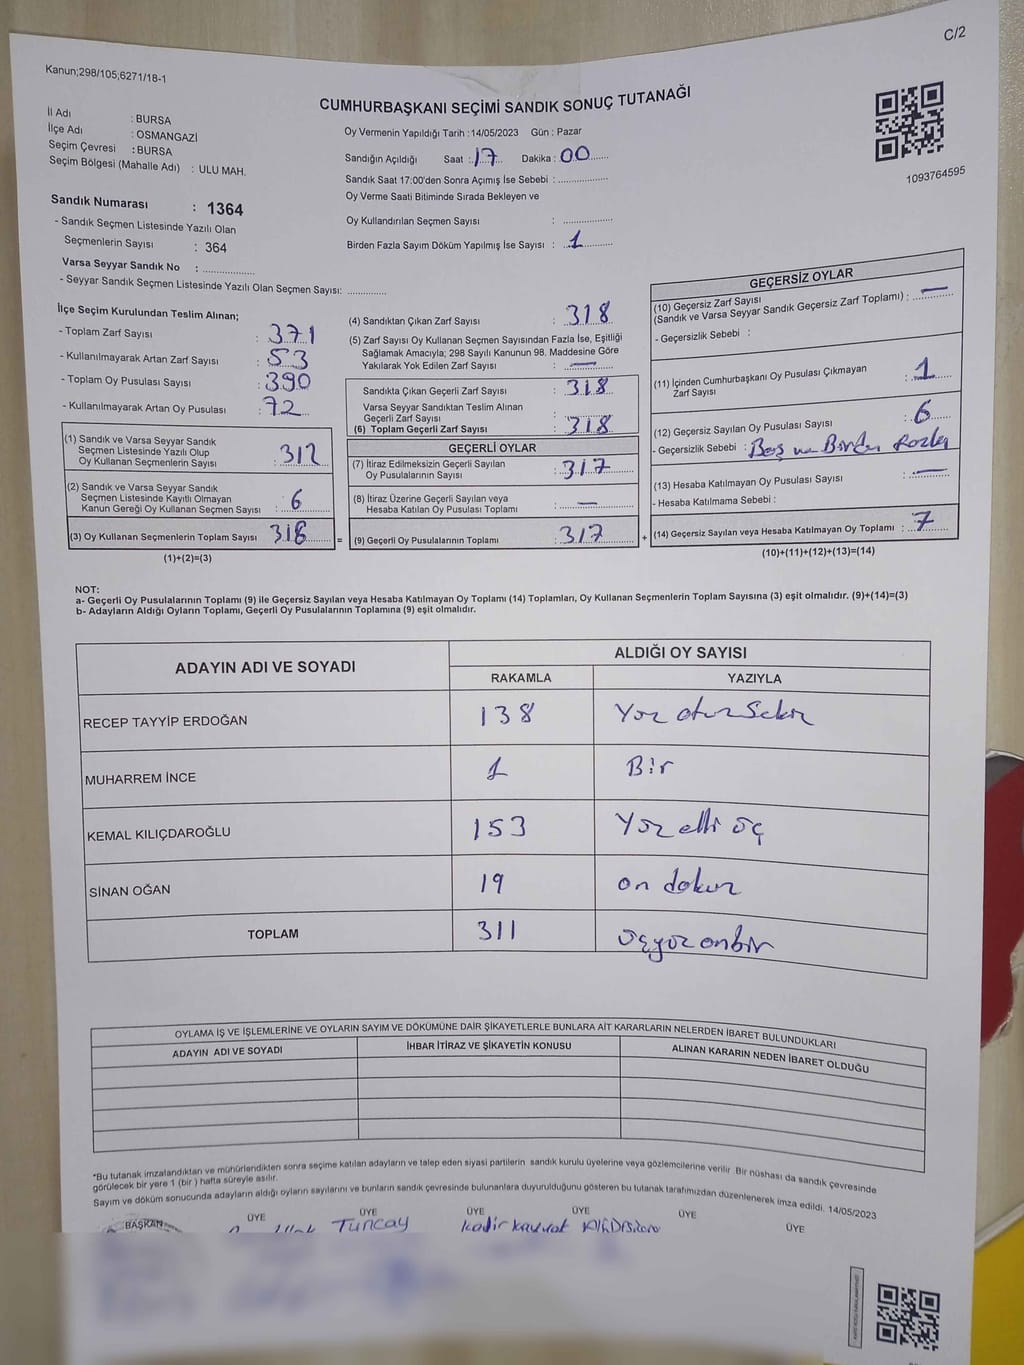 C/2
Kanun;298/105;6271/18-1
CUMHURBAŞKANI SEÇİMİ SANDIK SONUÇ TUTANAĞI
1093764595
İl Adı : BURSA
İlçe Adı : OSMANGAZİ
Seçim Çevresi : BURSA
Seçim Bölgesi (Mahalle Adı) : ULU MAH.
Sandık Numarası : 1364
- Sandık Seçmen Listesinde Yazılı Olan
Seçmenlerin Sayısı : 364
Varsa Seyyar Sandık No : ................
- Seyyar Sandık Seçmen Listesinde Yazılı Olan Seçmen Sayısı: ............
Oy Vermenin Yapıldığı Tarih : 14/05/2023 Gün : Pazar
Sandığın Açıldığı Saat : 17 Dakika : 00
Sandık Saat 17:00'den Sonra Açımış İse Sebebi : ................
Oy Verme Saati Bitiminde Sırada Bekleyen ve
Oy Kullandırılan Seçmen Sayısı : ................
Birden Fazla Sayım Döküm Yapılmış İse Sayısı : 1
İlçe Seçim Kurulundan Teslim Alınan;
- Toplam Zarf Sayısı : 371
- Kullanılmayarak Artan Zarf Sayısı : 53
- Toplam Oy Pusulası Sayısı : 390
- Kullanılmayarak Artan Oy Pusulası : 72
(1) Sandık ve Varsa Seyyar Sandık
Seçmen Listesinde Yazılı Olup
Oy Kullanan Seçmenlerin Sayısı : 312
(2) Sandık ve Varsa Seyyar Sandık
Seçmen Listesinde Kayıtlı Olmayan
Kanun Gereği Oy Kullanan Seçmen Sayısı : 6
(3) Oy Kullanan Seçmenlerin Toplam Sayısı 318
(1)+(2)=(3)
=
(4) Sandıktan Çıkan Zarf Sayısı : 318
(5) Zarf Sayısı Oy Kullanan Seçmen Sayısından Fazla İse, Eşitliği
Sağlamak Amacıyla; 298 Sayılı Kanunun 98. Maddesine Göre
Yakılarak Yok Edilen Zarf Sayısı : —
Sandıkta Çıkan Geçerli Zarf Sayısı : 318
Varsa Seyyar Sandıktan Teslim Alınan
Geçerli Zarf Sayısı
(6) Toplam Geçerli Zarf Sayısı : 318
GEÇERLİ OYLAR
(7) İtiraz Edilmeksizin Geçerli Sayılan
Oy Pusulalarının Sayısı : 317
(8) İtiraz Üzerine Geçerli Sayılan veya
Hesaba Katılan Oy Pusulası Toplamı : —
(9) Geçerli Oy Pusulalarının Toplamı : 317
+
GEÇERSİZ OYLAR
(10) Geçersiz Zarf Sayısı
(Sandık ve Varsa Seyyar Sandık Geçersiz Zarf Toplamı) : —
- Geçersizlik Sebebi :
(11) İçinden Cumhurbaşkanı Oy Pusulası Çıkmayan
Zarf Sayısı : 1
(12) Geçersiz Sayılan Oy Pusulası Sayısı : 6
- Geçersizlik Sebebi : Boş ve Birden Fazla
(13) Hesaba Katılmayan Oy Pusulası Sayısı : —
- Hesaba Katılmama Sebebi :
(14) Geçersiz Sayılan veya Hesaba Katılmayan Oy Toplamı : 7
(10)+(11)+(12)+(13)=(14)
NOT:
a- Geçerli Oy Pusulalarının Toplamı (9) ile Geçersiz Sayılan veya Hesaba Katılmayan Oy Toplamı (14) Toplamları, Oy Kullanan Seçmenlerin Toplam Sayısına (3) eşit olmalıdır. (9)+(14)=(3)
b- Adayların Aldığı Oyların Toplamı, Geçerli Oy Pusulalarının Toplamına (9) eşit olmalıdır.
ADAYIN ADI VE SOYADI ALDIĞI OY SAYISI
RAKAMLA YAZIYLA
RECEP TAYYİP ERDOĞAN 138 Yüz otuz Sekiz
MUHARREM İNCE 1 Bir
KEMAL KILIÇDAROĞLU 153 Yüz elli üç
SİNAN OĞAN 19 on dokuz
TOPLAM 311 üçyüz onbir
OYLAMA İŞ VE İŞLEMLERİNE VE OYLARIN SAYIM VE DÖKÜMÜNE DAİR ŞİKAYETLERLE BUNLARA AİT KARARLARIN NELERDEN İBARET BULUNDUKLARI
ADAYIN ADI VE SOYADI İHBAR İTİRAZ VE ŞİKAYETİN KONUSU ALINAN KARARIN NEDEN İBARET OLDUĞU
*Bu tutanak imzalandıktan ve mühürlendikten sonra seçime katılan adayların ve talep eden siyasi partilerin sandık kurulu üyelerine veya gözlemcilerine verilir. Bir nüshası da sandık çevresinde
görülecek bir yere 1 (bir ) hafta süreyle asılır.
Sayım ve döküm sonucunda adayların aldığı oyların sayılarını ve bunların sandık çevresinde bulunanlara duyurulduğunu gösteren bu tutanak tarafımızdan düzenlenerek imza edildi. 14/05/2023
BAŞKAN ÜYE ÜYE ÜYE ÜYE ÜYE ÜYE
Tuncay Kadir